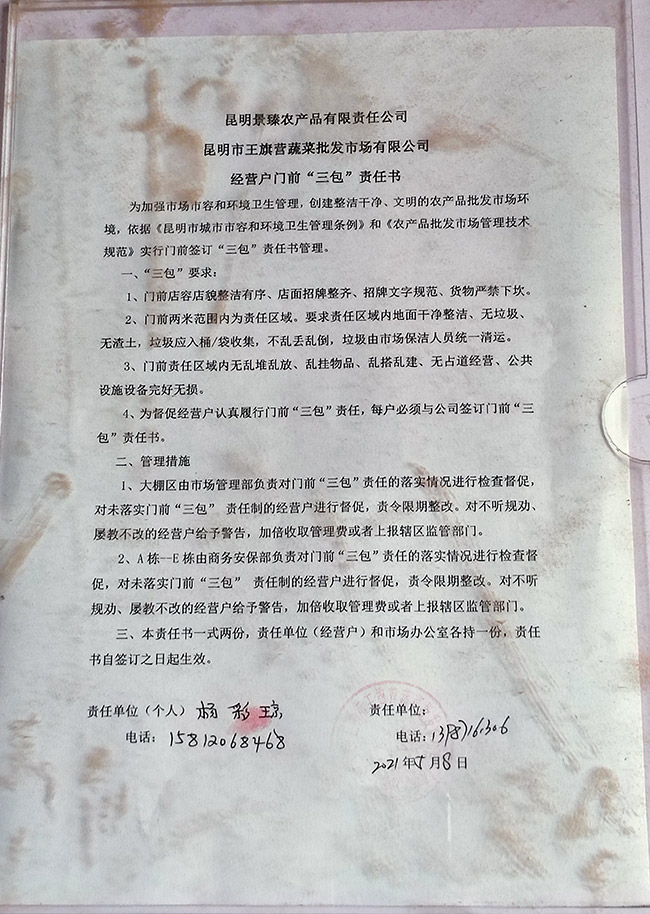 昆明景臻农产品有限责任公司
昆明市王旗营蔬菜批发市场有限公司
经营户门前“三包”责任书
为加强市场市容和环境卫生管理，创建整洁干净、文明的农产品批发市场环
境，依据《昆明市城市市容和环境卫生管理条例》和《农产品批发市场管理技术
规范》实行门前签订“三包”责任书管理。
一、“三包”要求：
1、门前店容店貌整洁有序、店面招牌整齐、招牌文字规范、货物严禁下坎。
2、门前两米范围内为责任区域。要求责任区域内地面干净整洁、无垃圾、
无渣土，垃圾应入桶/袋收集，不乱丢乱倒，垃圾由市场保洁人员统一清运。
3、门前责任区域内无乱堆乱放、乱挂物品、乱搭乱建、无占道经营、公共
设施设备完好无损。
4、为督促经营户认真履行门前“三包”责任，每户必须与公司签订门前“三
包”责任书。
二、管理措施
1、大棚区由市场管理部负责对门前“三包”责任的落实情况进行检查督促，
对未落实门前“三包” 责任制的经营户进行督促，责令限期整改。对不听规劝、
屡教不改的经营户给予警告，加倍收取管理费或者上报辖区监管部门。
2、A栋--E栋由商务安保部负责对门前“三包”责任的落实情况进行检查督
促，对未落实门前“三包” 责任制的经营户进行督促，责令限期整改。对不听
规劝、屡教不改的经营户给予警告，加倍收取管理费或者上报辖区监管部门。
三、本责任书一式两份，责任单位（经营户）和市场办公室各持一份，责任
书自签订之日起生效。
责任单位（个人）杨彩琼 责任单位：
电话：15812068468 电话：
2021年5月8日